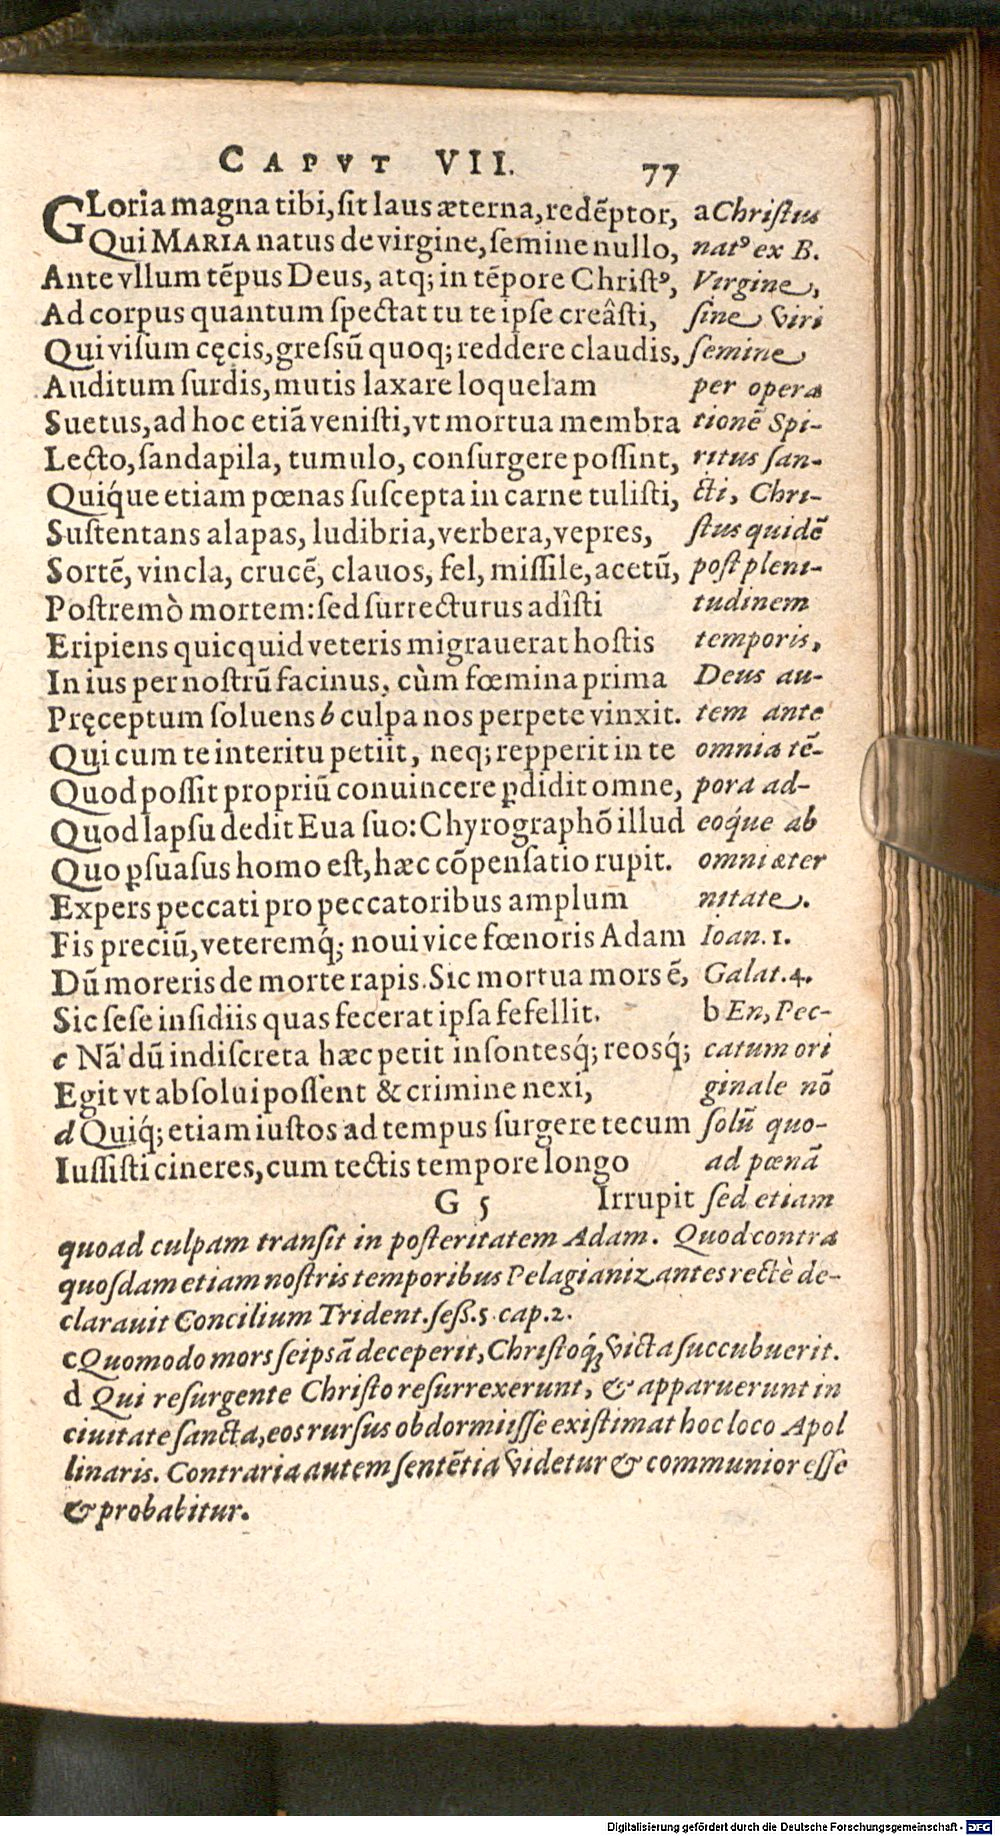 CAPVT VII. 77
GLoria magna tibi, sit laus æterna, redẽptor,
Qui MARIA natus de virgine, semine nullo,
Ante vllum tẽpus Deus, atq; in tẽpore Christꝰ,
Ad corpus quantum spectat tu te ipse creâsti,
Qui visum cęcis, gressũ quoq; reddere claudis,
Auditum surdis, mutis laxare loquelam
Suetus, ad hoc etiã venisti, vt mortua membra
Lecto, sandapila, tumulo, consurgere possint,
Quiq́ue etiam pœnas suscepta in carne tulisti,
Sustentans alapas, ludibria, verbera, vepres,
Sortẽ, vincla, crucẽ, clauos, fel, missile, acetũ,
Postremò mortem: sed surrecturus adîsti
Eripiens quicquid veteris migrauerat hostis
In ius per nostrũ facinus, cùm fœmina prima
Pręceptum soluens b culpa nos perpete vinxit.
Qui cum te interitu petiit, neq; repperit in te
Quod possit propriũ conuincere ꝑdidit omne,
Quod lapsu dedit Eua suo: Chyrographõ illud
Quo ꝑsuasus homo est, hæc cõpensatio rupit.
Expers peccati pro peccatoribus amplum
Fis preciũ, veteremq́; noui vice fœnoris Adam
Dũ moreris de morte rapis. Sic mortua mors ẽ,
Sic sese insidiis quas fecerat ipsa fefellit.
c Nã dũ indiscreta hæc petit insontesq́; reosq́;
Egit vt absolui possent & crimine nexi,
d Quiq́; etiam iustos ad tempus surgere tecum
Iussisti cineres, cum tectis tempore longo
G 5 Irrupit
a Christus
natꝰ ex B.
Virgine,
sine viri
semine
per opera
tionẽ Spi-
ritus san-
cti, Chri-
stus quidẽ
post pleni-
tudinem
temporis,
Deus au-
tem ante
omnia tẽ-
pora ad-
eoq́ue ab
omni æter
nitate.
Ioan. 1.
Galat. 4.
b En, Pec-
catum ori
ginale nõ
solũ quo-
ad pœnã
sed etiam
quoad culpam transit in posteritatem Adam. Quod contra
quosdam etiam nostris temporibus Pelagianizantes rectè de-
clarauit Concilium Trident. seß. 5. cap. 2.
c Quomodo mors seipsã deceperit, Christoq́; victa succubuerit.
d Qui resurgente Christo resurrexerunt, & apparuerunt in
ciuitate sancta, eos rursus obdormiisse existimat hoc loco Apol
linaris. Contraria autem sentẽtia videtur & communior esse
& probabitur.
Digitalisierung gefördert durch die Deutsche Forschungsgemeinschaft - DFG